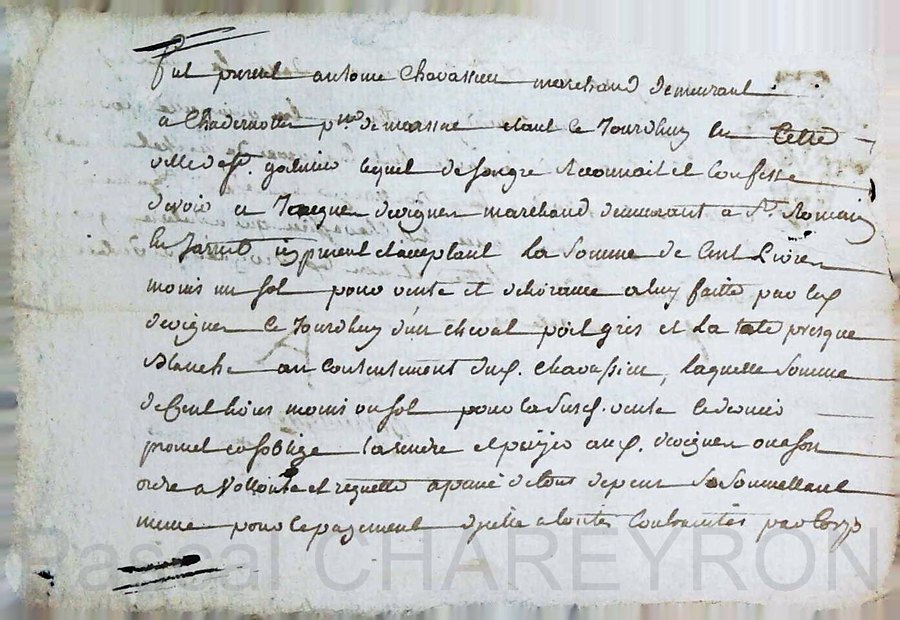 fut present antoine Chavassieu marchand demeurant
a Chadernolles p.sse de marsac etant ce Jourdhuy en Cette
ville de st. galmier lequel de son gre Reconnait et Confesse
devoir a Jacques devigne marchand demeurant a St. Romain
En Jarret icy present et acceptant La Somme de Cent Livres
moins un Sol pour vente et delivrance a luy faitte par led.
devigne Ce Jourdhuy d'un cheval poil gris et La tete presque
Blanche au Contentement dud. Chavassieu, laquelle Somme
de Cent livres moins un sol pour la Susd. vente le dernier
promet et soblige La rendre et payer aud. devigne ou a son
ordre a Vollonté et requette a paine de tous depens Se Soumettant
meme pour le payement d'icelle a toutes Contraintes par Corps
Pascal CHAREYRON